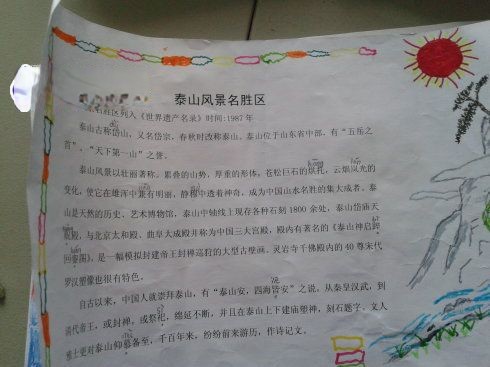 泰山风景名胜区
名胜区列入《世界遗产名录》时间:1987年
泰山古称岱山，又名岱宗，春秋时改称泰山。泰山位于山东省中部，有“五岳之
首”、“天下第一山”之誉。
泰山风景以壮丽著称。累叠的山势，厚重的形体，苍松巨石的烘托，云烟岚光的
变化，使它在雄浑中兼有明丽，静穆中透着神奇，成为中国山水名胜的集大成者。泰
山是天然的历史、艺术博物馆，泰山中轴线上现存各种石刻1800余处，泰山岱庙天
贶殿，与北京太和殿、曲阜大成殿并称为中国三大宫殿，殿内有著名的《泰山神启跸
回銮图》，是一幅模拟封建帝王封禅巡狩的大型古壁画。灵岩寺千佛殿内的40尊宋代
罗汉塑像也很有特色。
自古以来，中国人就崇拜泰山，有“泰山安，四海皆安”之说。从秦皇汉武，到
清代帝王，或封禅，或祭祀，绵延不断，并且在泰山上下建庙塑神，刻石题字。文人
雅士更对泰山仰慕备至，千百年来，纷纷前来游历，作诗记文。